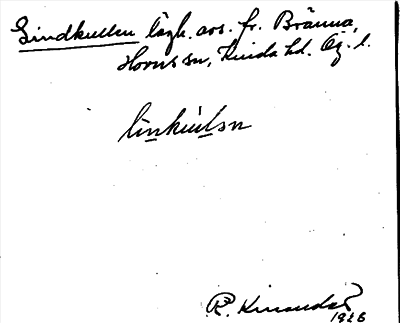 Lindkullen lägh. avs. fr. Bränna,
Horns sn, Kinda hd. Ög. l.
linkúlsn
R.
1926